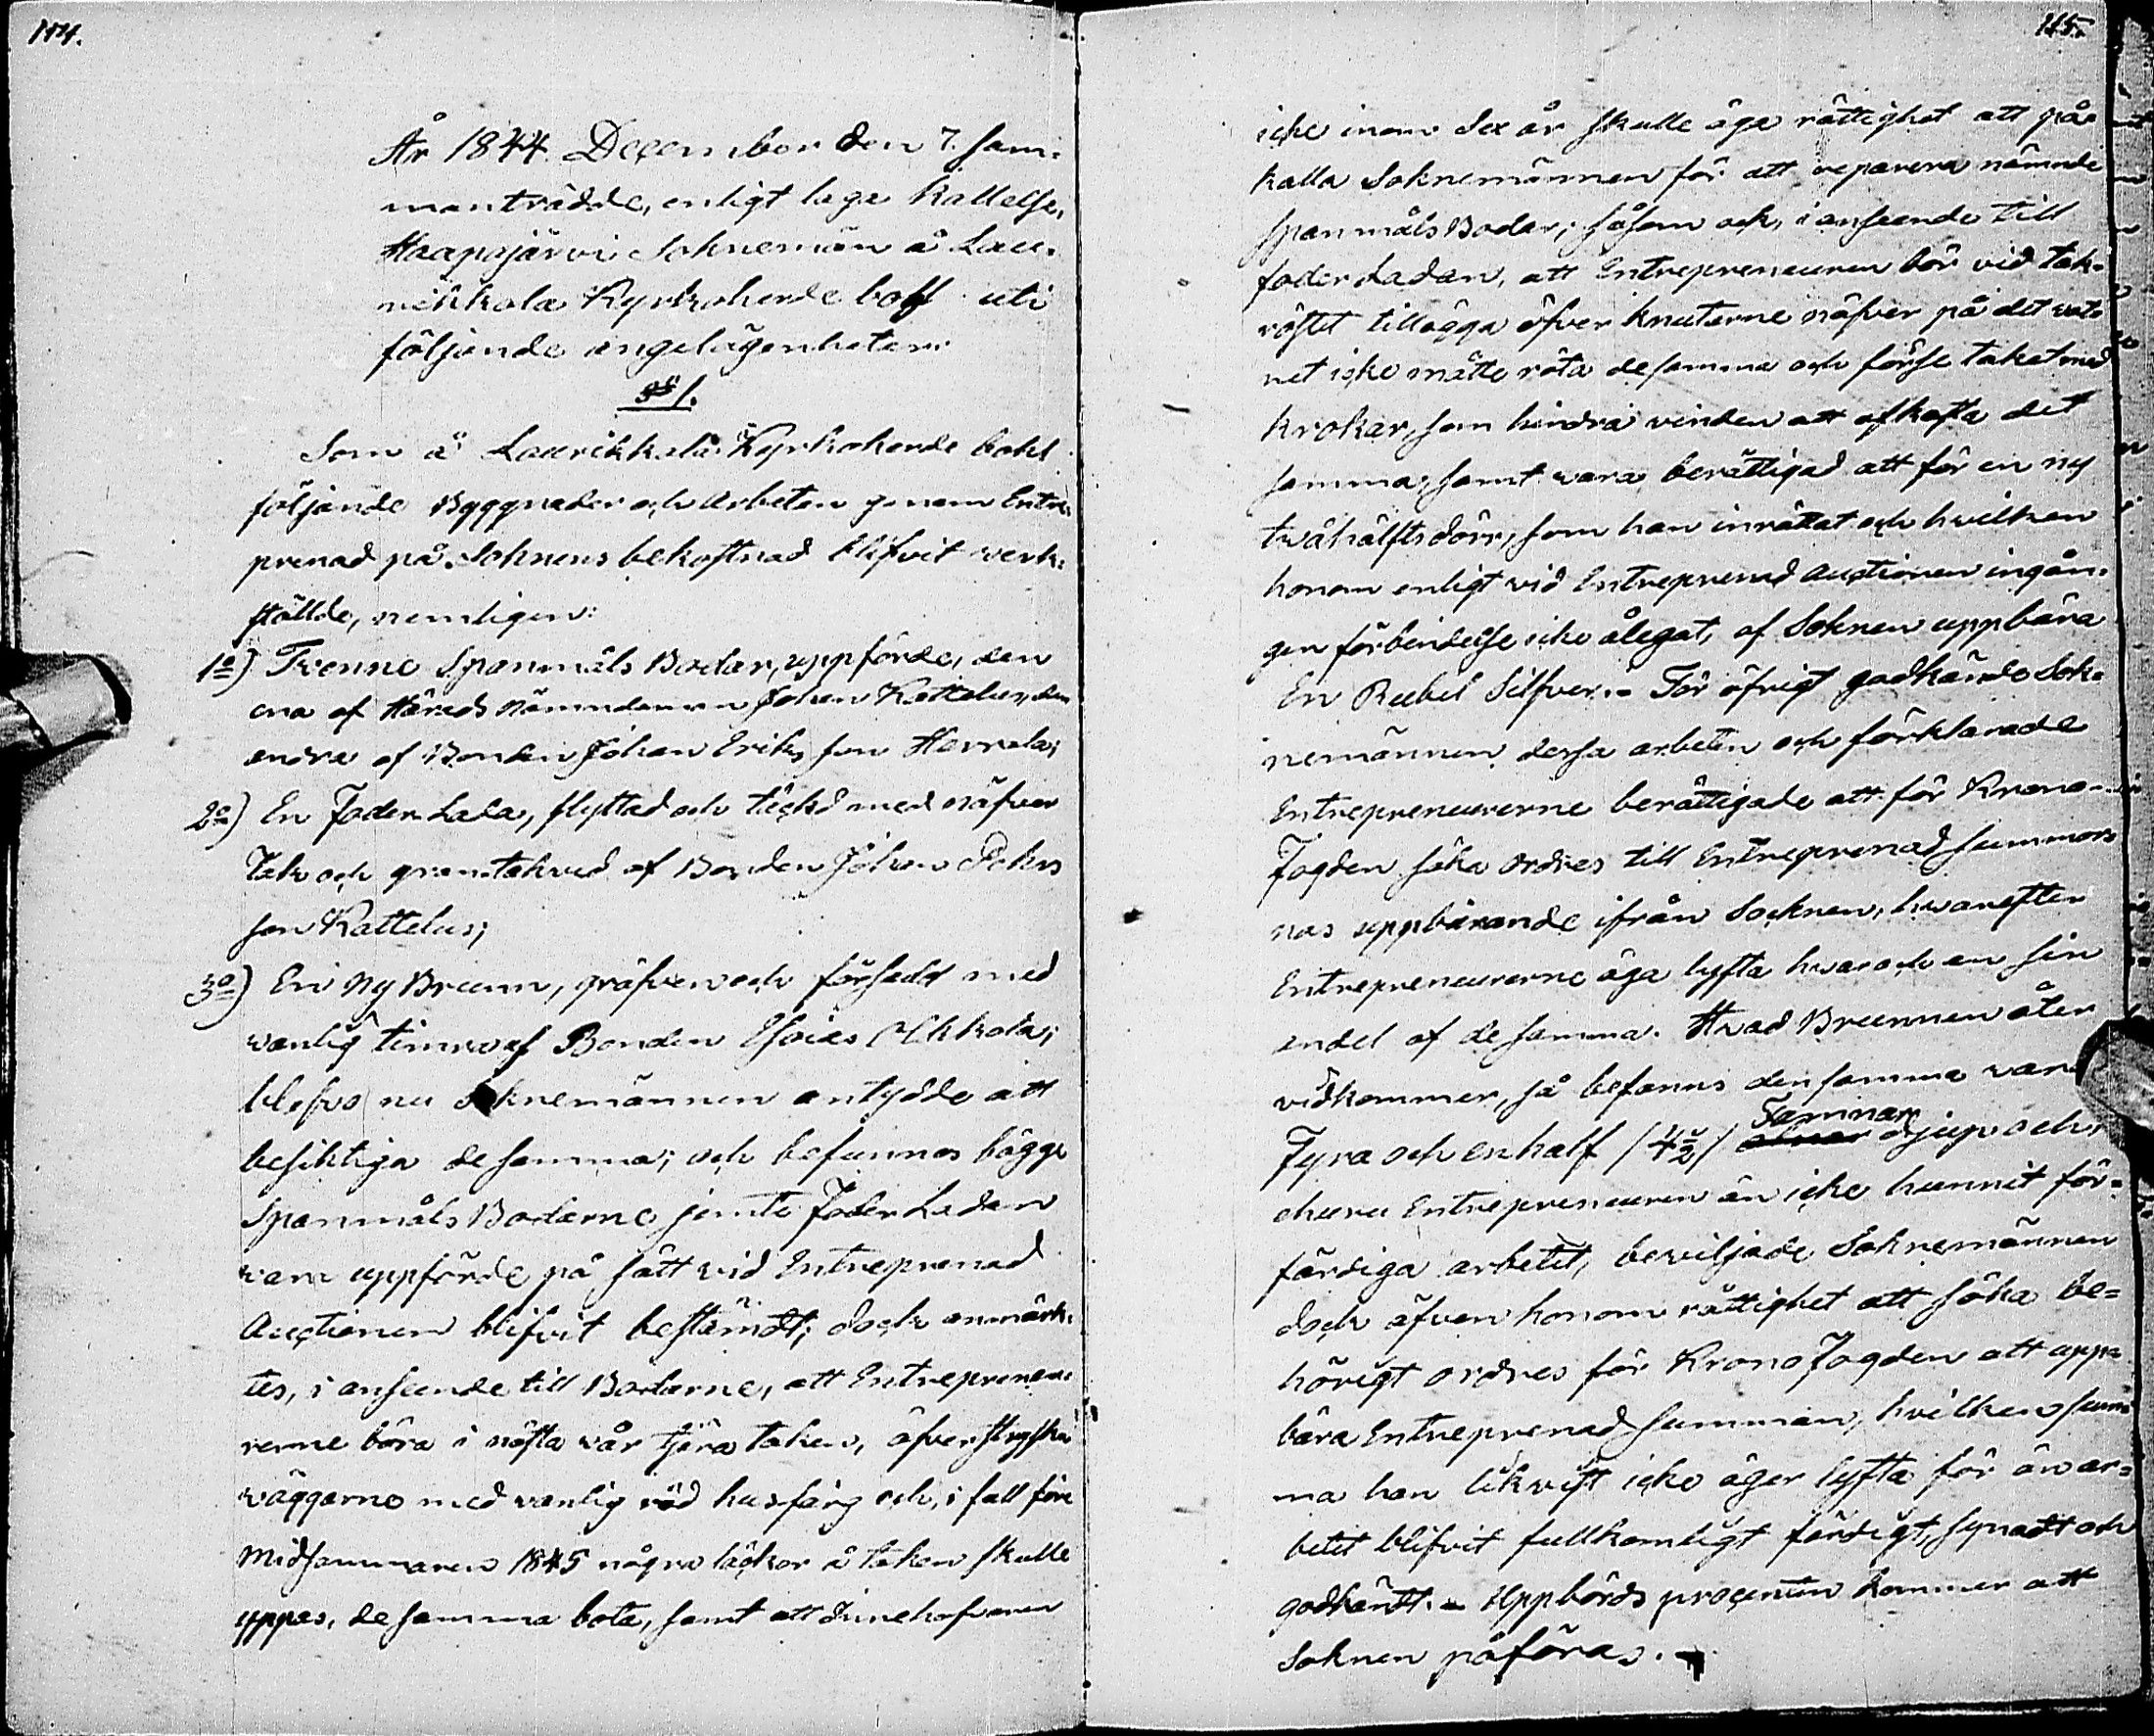 114.
År 1844 December den 7. sam-
manträdde, enligt laga kallelse,
Haapajärvi Sokneman å Lau-
rikkala Kyrkoherde bohl uti
följande angelägenheter:
§ 1.
Som å Laurikkala Kyrkoherde bohl
följande Byggnader och arbeten genom Entre-
prenad på Soknens bekostnad blifvit verk-
ställde, nemligen:
1o) Tvenne Spanmåls Bodar, uppförde, den
ena af Härads Nämndeman Johan Kattelus, den
andra af Bonden Johan Eriksson Herrala;
2o) En Foder Lada, flyttad och täckt med näfver
Tak och grantakved af Bonden Johan Pehrs
son Kattelus;
3o) En ny Brunn, gräfven och försedd med
vanlig timra af Bonden Esaias Ukkola;
blefvo nu Soknemännen antydde att
besiktiga desamma; och befunnos bägge
Spanmåls Bodarne jemte Foder Ladan
vara uppförde på sätt vid Entreprenad
Auctionen blifvit bestämdt; dock anmärk-
tes, i anseende till Bodarne, att Entrepreneu-
rerne böra i nästa vår tjära taken, öfverstryka
väggarne med vanlig röd husfärg och, i fall före
Midsommaren 1845 några läckor å taken skulle
yppas, desamma bota, samt att Innehafvaren
115.
icke inom Sex år skulle äga rättighet att på-
kalla Soknemännen för att reparera nämnde
Spanmåls Bodar; såsom och, i anseende till
foder Ladan, att Entrepreneuren bör vid tak-
röstet tillägga öfver knutarne näfver på det vat-
net icke måtte röta desamma och förse taket med
krokar, som hindra vinden att afkasta det
samma, samt vara berättigad att för en ny
tvåhälftsdörr, som han inrättat och hvilken
honom enligt vid Entreprenad Auctionen ingån-
gen förbindelse icke ålegat, af Soknen uppbära
En Rubel Silfver. - För öfrigt godkände Sok-
nemännen dessa arbeten och förklarade
Entrepreneurerne berättigade att för Krono-
Fogden söka ordres till Entreprenad summor-
nas uppbärande ifrån Socknen, hvarefter
Entrepreneurerne äga lyfta hvar och en sin
andel af desamma. Hvad Brunnen åter
vidkommer, så befanns densamma vara
Famnar
Fyra och en half /4½/ alnar djup och,
ehuru Entrepreneuren än icke hunnit för-
färdiga arbetet, beviljade Soknemännen
dock äfven honom rättighet att söka be-
hörigt ordres för Krono Fogden att upp-
bära Entreprenad summan, hvilken sum-
ma han likväl icke äger lyfta för än ar-
betet blifvit fullkomligt färdigt, synadt och
godkändt. - Uppbörds procenten kommer att
Soknen påföras. -